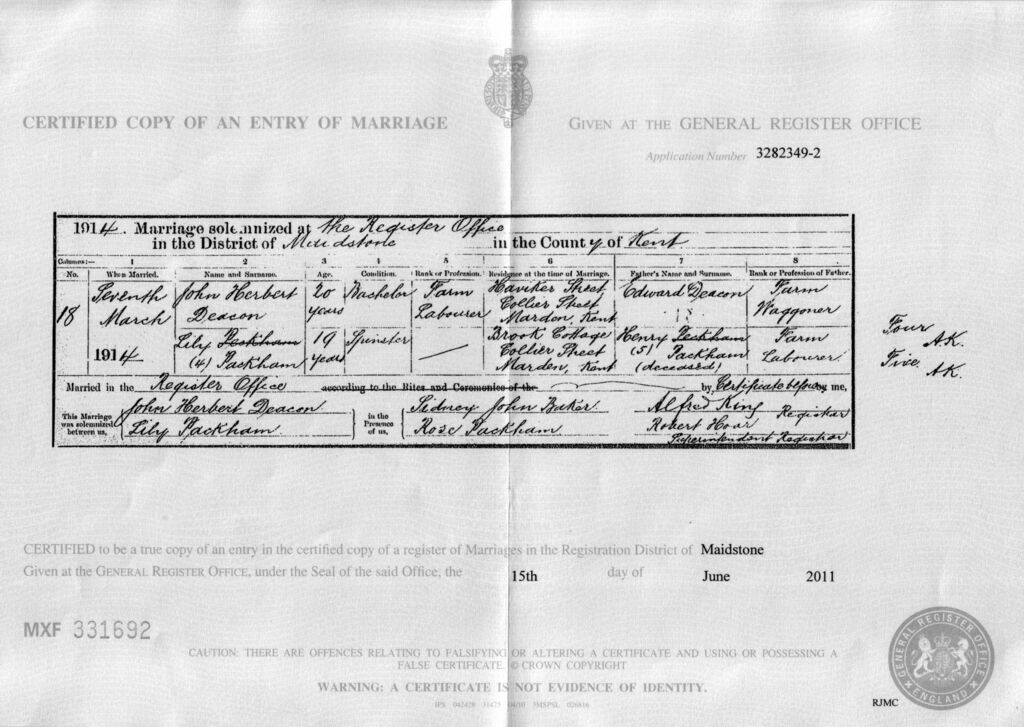 CERTIFIED COPY OF AN ENTRY OF MARRIAGE
GIVEN AT THE GENERAL REGISTER OFFICE
Application Number 3282349-2
1914. Marriage solemnized at the Register Office
in the District of Maidstone in the County of Kent
Columns:— 1 2 3 4 5 6 7 8
No. When Married. Name and Surname. Age. Condition. Rank or Profession. Residence at the time of Marriage. Father's Name and Surname. Rank or Profession of Father.
18 Seventh March 1914 John Herbert Deacon 20 years Bachelor Farm Labourer Haviker Street Collier Street Marden, Kent Edward Deacon Farm Waggoner
Lily Peckham (4) Packham 19 years Spinster — Brook Cottage Collier Street Marden, Kent Henry Peckham (5) Packham (deceased) Farm Labourer
Four A.K.
Five A.K.
Married in the Register Office according to the Rites and Ceremonies of the by Certificate before me,
This Marriage was solemnized between us, John Herbert Deacon Lily Packham
in the Presence of us, Sidney John Baker. Rose Packham
Alfred King Registrar
Robert Hoar
Superintendent Registrar
CERTIFIED to be a true copy of an entry in the certified copy of a register of Marriages in the Registration District of Maidstone
Given at the GENERAL REGISTER OFFICE, under the Seal of the said Office, the 15th day of June 2011
MXF 331692
CAUTION: THERE ARE OFFENCES RELATING TO FALSIFYING OR ALTERING A CERTIFICATE AND USING OR POSSESSING A
FALSE CERTIFICATE. © CROWN COPYRIGHT
WARNING: A CERTIFICATE IS NOT EVIDENCE OF IDENTITY.
GENERAL REGISTER OFFICE
ENGLAND
RJMC